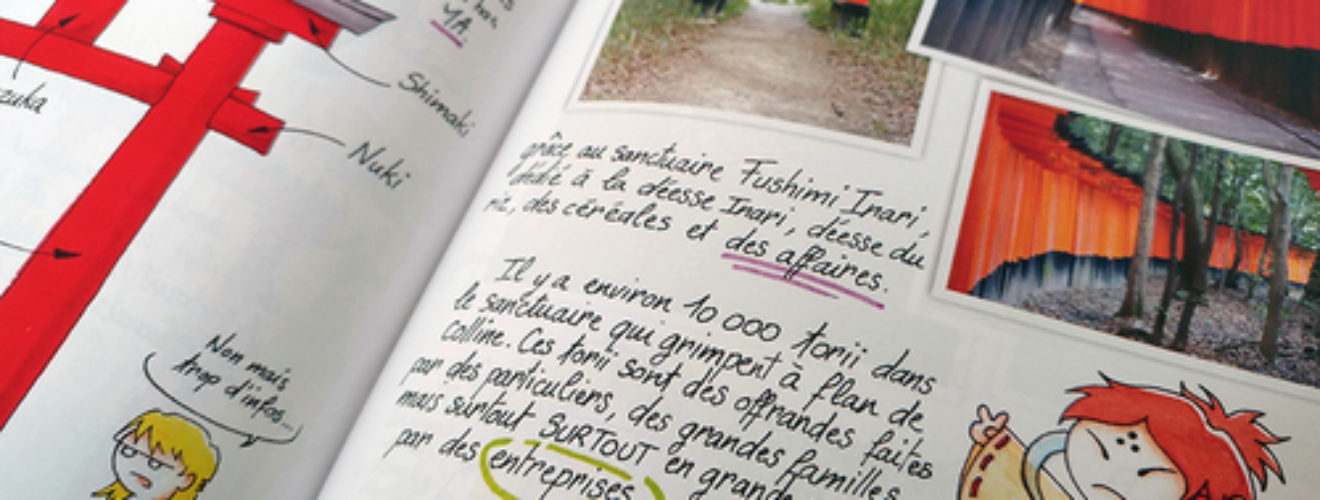 YA.
Shimaki
Nuki
Non mais
trop d'infos...
grâce au sanctuaire Fushimi Inari,
dédié à la déesse Inari, déesse du
riz, des céréales et des affaires.
Il y a environ 10 000 torii dans
le sanctuaire qui grimpent à flan de
colline. Ces torii sont des offrandes faites
par des particuliers, des grandes familles
mais surtout SURTOUT en grande
par des entreprises